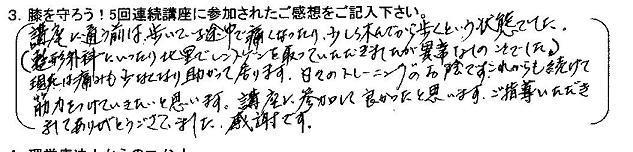 3. 膝を守ろう！5回連続講座に参加されたご感想をご記入下さい。
講座に通う前は、歩いている途中で痛くなったり、少し休んでから歩くという状態でした。
(整形外科にいったり地里でレントゲンを取っていただきましたが異常なしのことでした。)
現在は痛みも少なくなり助かって居ります。日々のトレーニングのお陰です。これからも続けて
筋力をつけていきたいと思います。講座に参加して良かったと思います。ご指導いただき
ましてありがとうございました。感謝です。